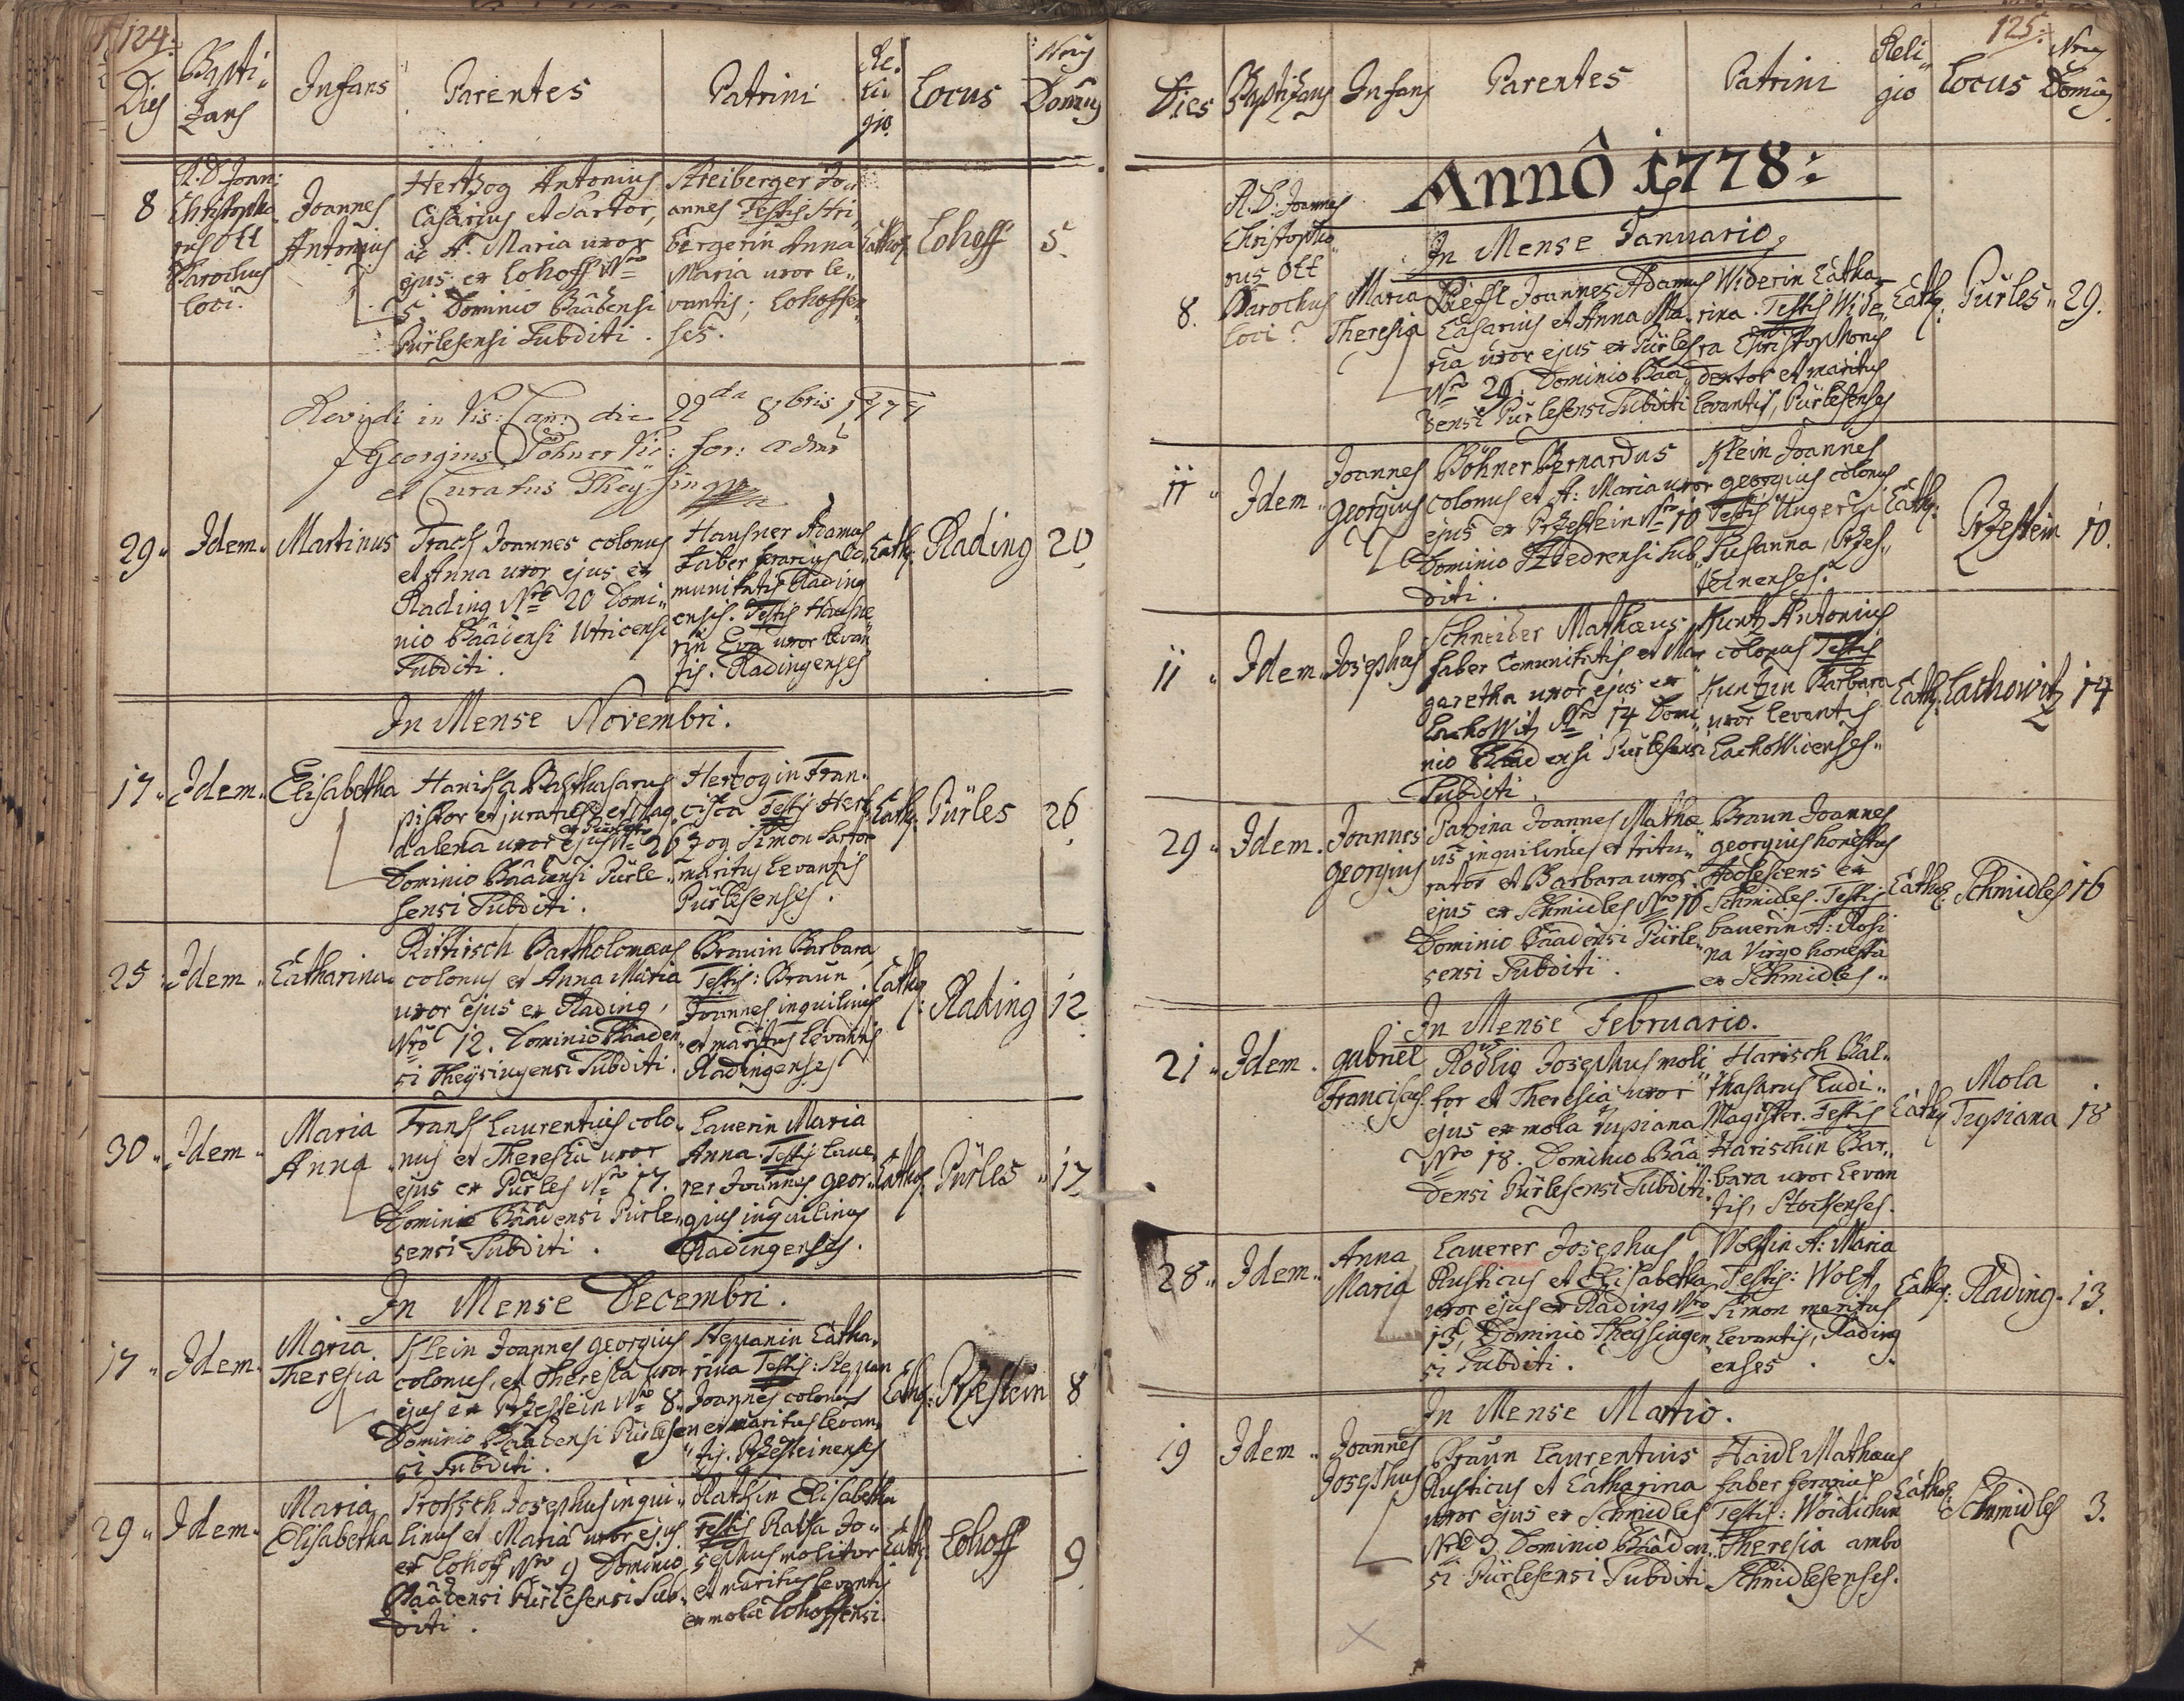 124.
Dies
Bapti-
zans
Infans
Parentes
Patrini
Re-
li-
gio.
Locus
Nrus
Domus
8
R. D. Joan:
Christopho
rus Ott
Parochus
loci.
Joannes
Antonius
Hertzog Antonius
Casarius et Sartor,
ac A. Maria uxor
ejus ex Lohoff Nro
5. Dominio Baâdensi
Pürlesensi Subditi.
Streiberger Jo-
annes Testis Stri,
bergerin Anna
Maria uxor le-
vantis; Lohoffen
ses.
Cathol:
Lohoff
5.
Revidi in Vis: Can: die 22da 8bris 1777
Georgius Pöhner Vic: for: adm
et Curatus Theysing
29 "
Idem "
Martinus
Trach Joannes colonus
et Anna uxor ejus ex
Rading Nro 20 Domi-
nio Baâdensi Utricensi
Subditi.
Hausner Adamus
Faber ferarius Co
munitatis Rading
ensis. Testis Hausne
rin Eva uxor levan
tis. Radingenses
Cath:
Rading
20
In Mense Novembri.
17 "
Idem "
Elisabetha
Harisch Balthasarus
pistor et juratus et Mag
dalena uxor ejus Nro 26
Dominio Baâdensi Pürle-
sensi Subditi.
Hertzogin Fran-
cisca Testis Hert
zog Simon Sartor
maritus Levantis
Pürlesenses.
Cath:
Pürles
26
25 "
Idem "
Catharina
Rittisch Bartholomæus
colonus et Anna Maria
uxor ejus ex Rading,
Nro 12. Dominio Baaden
si Theysingensi Subditi.
Braunin Barbara
Testis: Braun
Joannes inquilinus
et maritus levantis
Radingenses
Cathol:
Rading
12
30 "
Idem "
Maria
Anna
Frans Laurentius colo-
nus et Theresia uxor
ejus ex Pürles Nro 17.
Dominio Baâdensi Pürle-
sensi Subditi.
Lauerin Maria
Anna. Testis Laue-
rer Joannes Geor-
gius inquilinus
Radingenses.
Cathol:
Pürles "
17
In Mense Decembri.
17 "
Idem "
Maria
Theresia
Klein Joannes Georgius
colonus, et Theresia uxor
ejus ex Przestein Nro 8.
Dominio Baâdensi Pürlesen
si Subditi.
Steppanin Catha-
rina Testis: Steppan
Joannes colonus
et maritus levan
tis. Przesteinenses
Cathol:
Przestein
8
29 "
Idem "
Maria
Elisabetha
Protsch Josephus inqui-
linus et Maria uxor ejus
ex Lohoff Nro 9 Dominio
Baâdensi Pürlesensi Sub-
diti.
Rathin Elisabetha
Testis Ratha Jo-
sephus molitor
et maritus levantis
ex mola Lohoffensi.
Cath:
Lohoff
9
125.
Dies
Baptizans
Infans
Parentes
Patrini
Reli-
gio
Locus
Nrus
Domus
Annô 1778:
In Mense Januario.
8.
R. D. Joannes
Christopho
rus Ott
Parochus
loci
Maria
Theresia
Rieffl Joannes Adamus
Casarius et Anna Ma-
ria uxor ejus ex Pürles
Nro 29. Dominio Baa-
densi Pürlesensi Subditi
Widerin Catha-
rina. Testis Wide-
ra Christophorus
Textor et maritus
levantis, Pürlesenses
Cath:
Pürles "
29.
11 "
Idem "
Joannes
Georgius
Böhner Bernardus
colonus et A: Maria uxor
ejus ex Przestein Nro 10
Dominio Stiedrensi Sub-
diti.
Klein Joannes
Georgius colonus
Testis Ungerin
Susanna, Przes-
teinenses.
Cath:
Przestein
10.
11 "
Idem "
Josephus
Schneider Mathæus
faber Comunitatis et Mar
garetha uxor ejus ex
Lachowitz Nro 14 Domi
nio Baadensi Pürlesensi
Subditi.
Kuntz Antonius
colonus Testis
Kuntzin Barbara
uxor levantis
Lachowicenses "
Cath:
Lachowitz
14
29 "
Idem.
Joannes
Georgius
Patzina Joannes Mathæ
us inquilinus et tritu-
rator et Barbara uxor
ejus ex Schmidles Nro 16
Dominio Baadensi Pürle-
sensi Subditi.
Braun Joannes
Georgius honestus
Adolescens ex
Schmidles. Testis
bauerin A: Rosi
na Virgo honesta
ex Schmidles "
Cathol:
Schmidles
16
In Mense Februario.
21 "
Idem.
Gabriel
Franciscus
Rödlig Josephus moli-
tor et Theresia uxor
ejus ex mola Tupiana
Nro 18. Dominio Baâ
densi Pürlesensi Subditi.
Harisch Bal-
thasarus Ludi-
Magister. Testis
Harischin Bar-
bara uxor levan
tis, Stochenses.
Cath:
Mola
Tupiana
18
28 "
Idem "
Anna
Maria
Lauerer Josephus
Rusticus et Elisabetha
uxor ejus ex Rading Nro
13, Dominio Theysingen
si Subditi.
Wolfin A: Maria
Testis: Wolf
Simon maritus
levantis, Rading
enses.
Cath:
Rading "
13.
In Mense Martio.
19
Idem "
Joannes
Josephus
Braun Laurentius
Rusticus et Catharina
uxor ejus ex Schmidles
Nro 3 Dominio Baâden
si Pürlesensi Subditi
Haidl Mathæus
faber ferrarius
Testis: Woidichin
Theresia ambo
Schmidlesenses.
Cathol:
Schmidles
3.